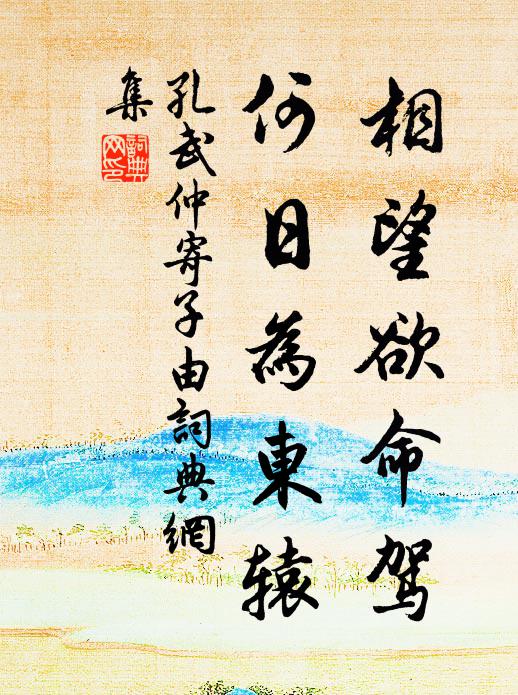 相望欲命驾
何日為東辕
孔武仲寄子由詞典網
集
詞典
网印